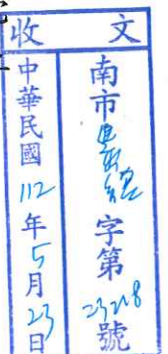 收文
南市字第23218號
中華民國112年5月23日